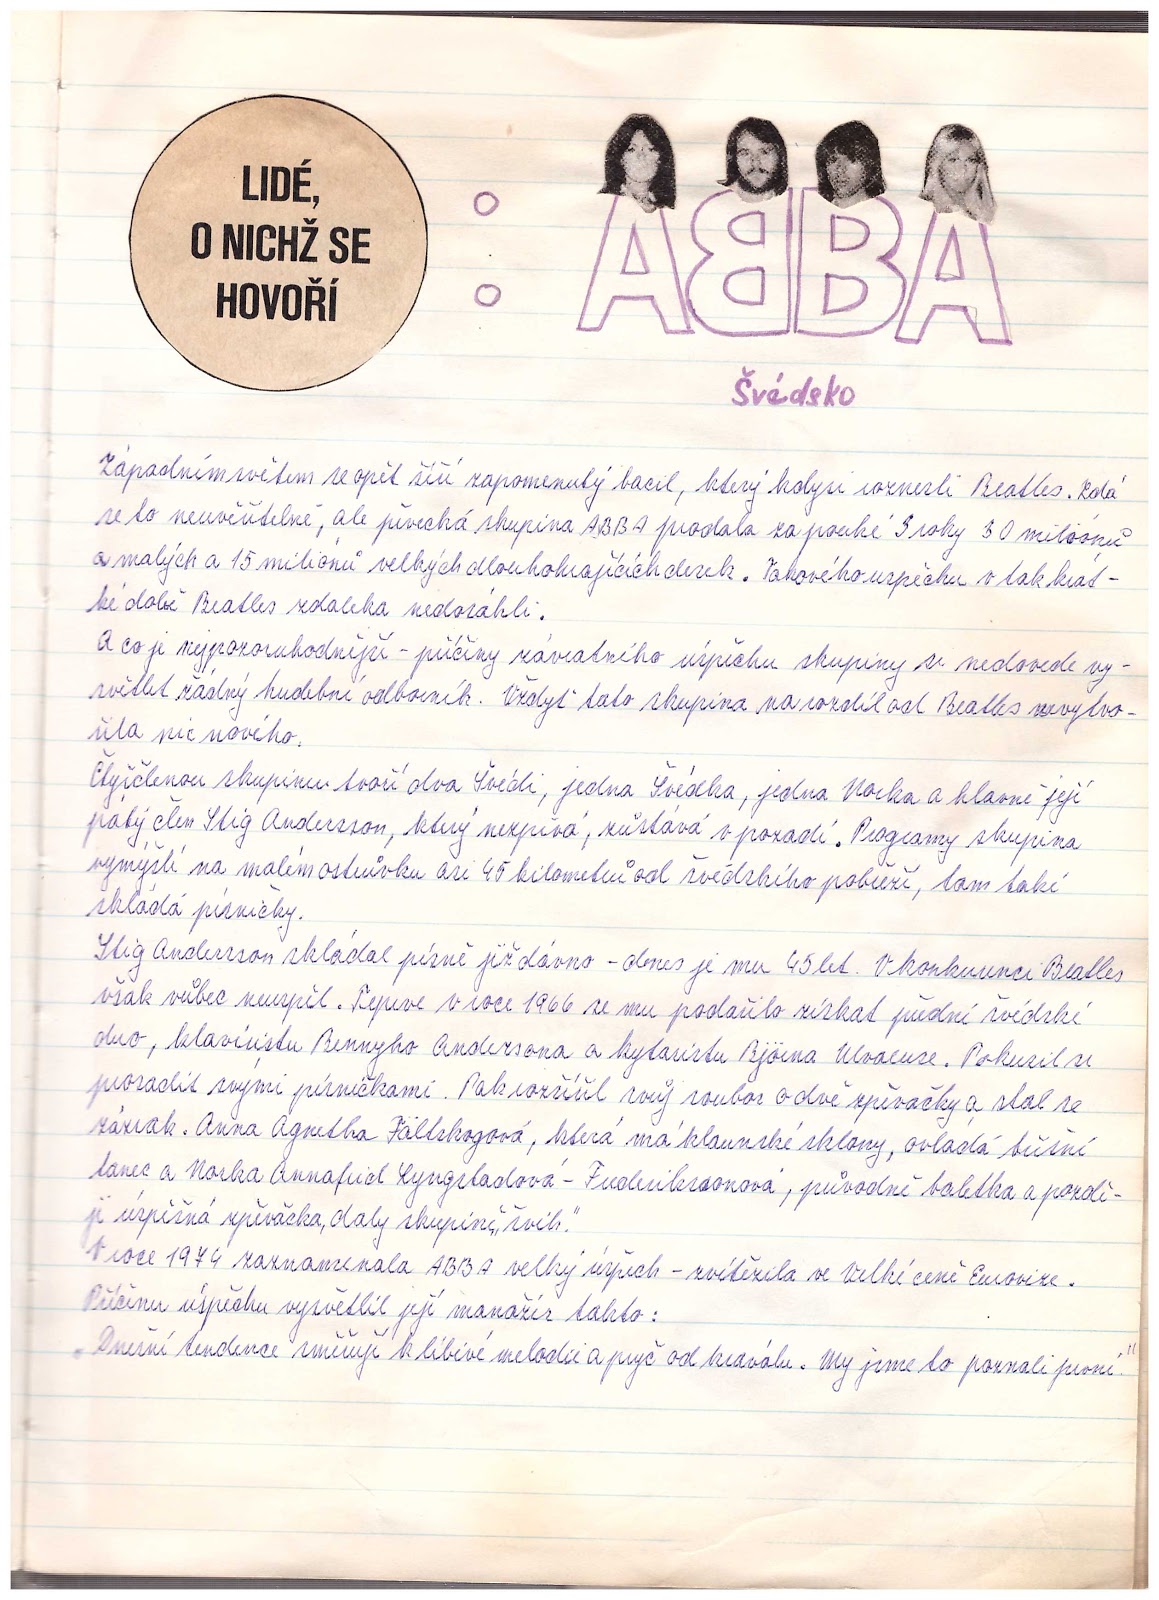 LIDÉ,
O NICHŽ SE
HOVOŘÍ
:
ABBA
Švédsko
Západním světem se opět šíří zapomenutý bacil, který kdysi roznesli Beatles. Zdá
se to neuvěřitelné, ale pěvecká skupina ABBA prodala za pouhé 3 roky 30 miliónů
malých a 15 miliónů velkých dlouhohrajících desek. Takového úspěchu v tak krát-
ké době Beatles zdaleka nedosáhli.
A co je nejpozoruhodnější - příčiny závratného úspěchu skupiny si nedovede vy-
světlit žádný hudební odborník. Vždyť tato skupina na rozdíl od Beatles nevytvo-
řila nic nového.
Čtyřčlenou skupinu tvoří dva Švédi, jedna Švédka, jedna Norka a hlavně její
pátý člen Stig Andersson, který nezpívá, zůstává v pozadí. Programy skupina
vymýšlí na malém ostrůvku asi 45 kilometrů od švédského pobřeží, tam také
skládá písničky.
Stig Andersson skládal písně již dávno - dnes je mu 45 let. V konkurenci Beatles
však vůbec neuspěl. Teprve v roce 1966 se mu podařilo získat přední švédské
duo, klavíristu Bennyho Andersona a kytaristu Björna Ulvaeuse. Pokusil se
prorazit svými písničkami. Pak rozšířil svůj soubor o dvě zpěvačky a stal se
zázrak. Anna Agnetha Fältskogová, která má klaunské sklony, ovládá břišní
tanec a Norka Annafrid Lyngstadová - Frederiksonová, původně baletka a pozdě-
ji úspěšná zpěvačka, daly skupině "švih."
V roce 1974 zaznamenala ABBA velký úspěch - zvítězila ve Velké ceně Eurovize.
Příčinu úspěchu vysvětlil její manažér takto:
„Dnešní tendence směřují k líbivé melodii a pryč od kraválu. My jsme to poznali první."